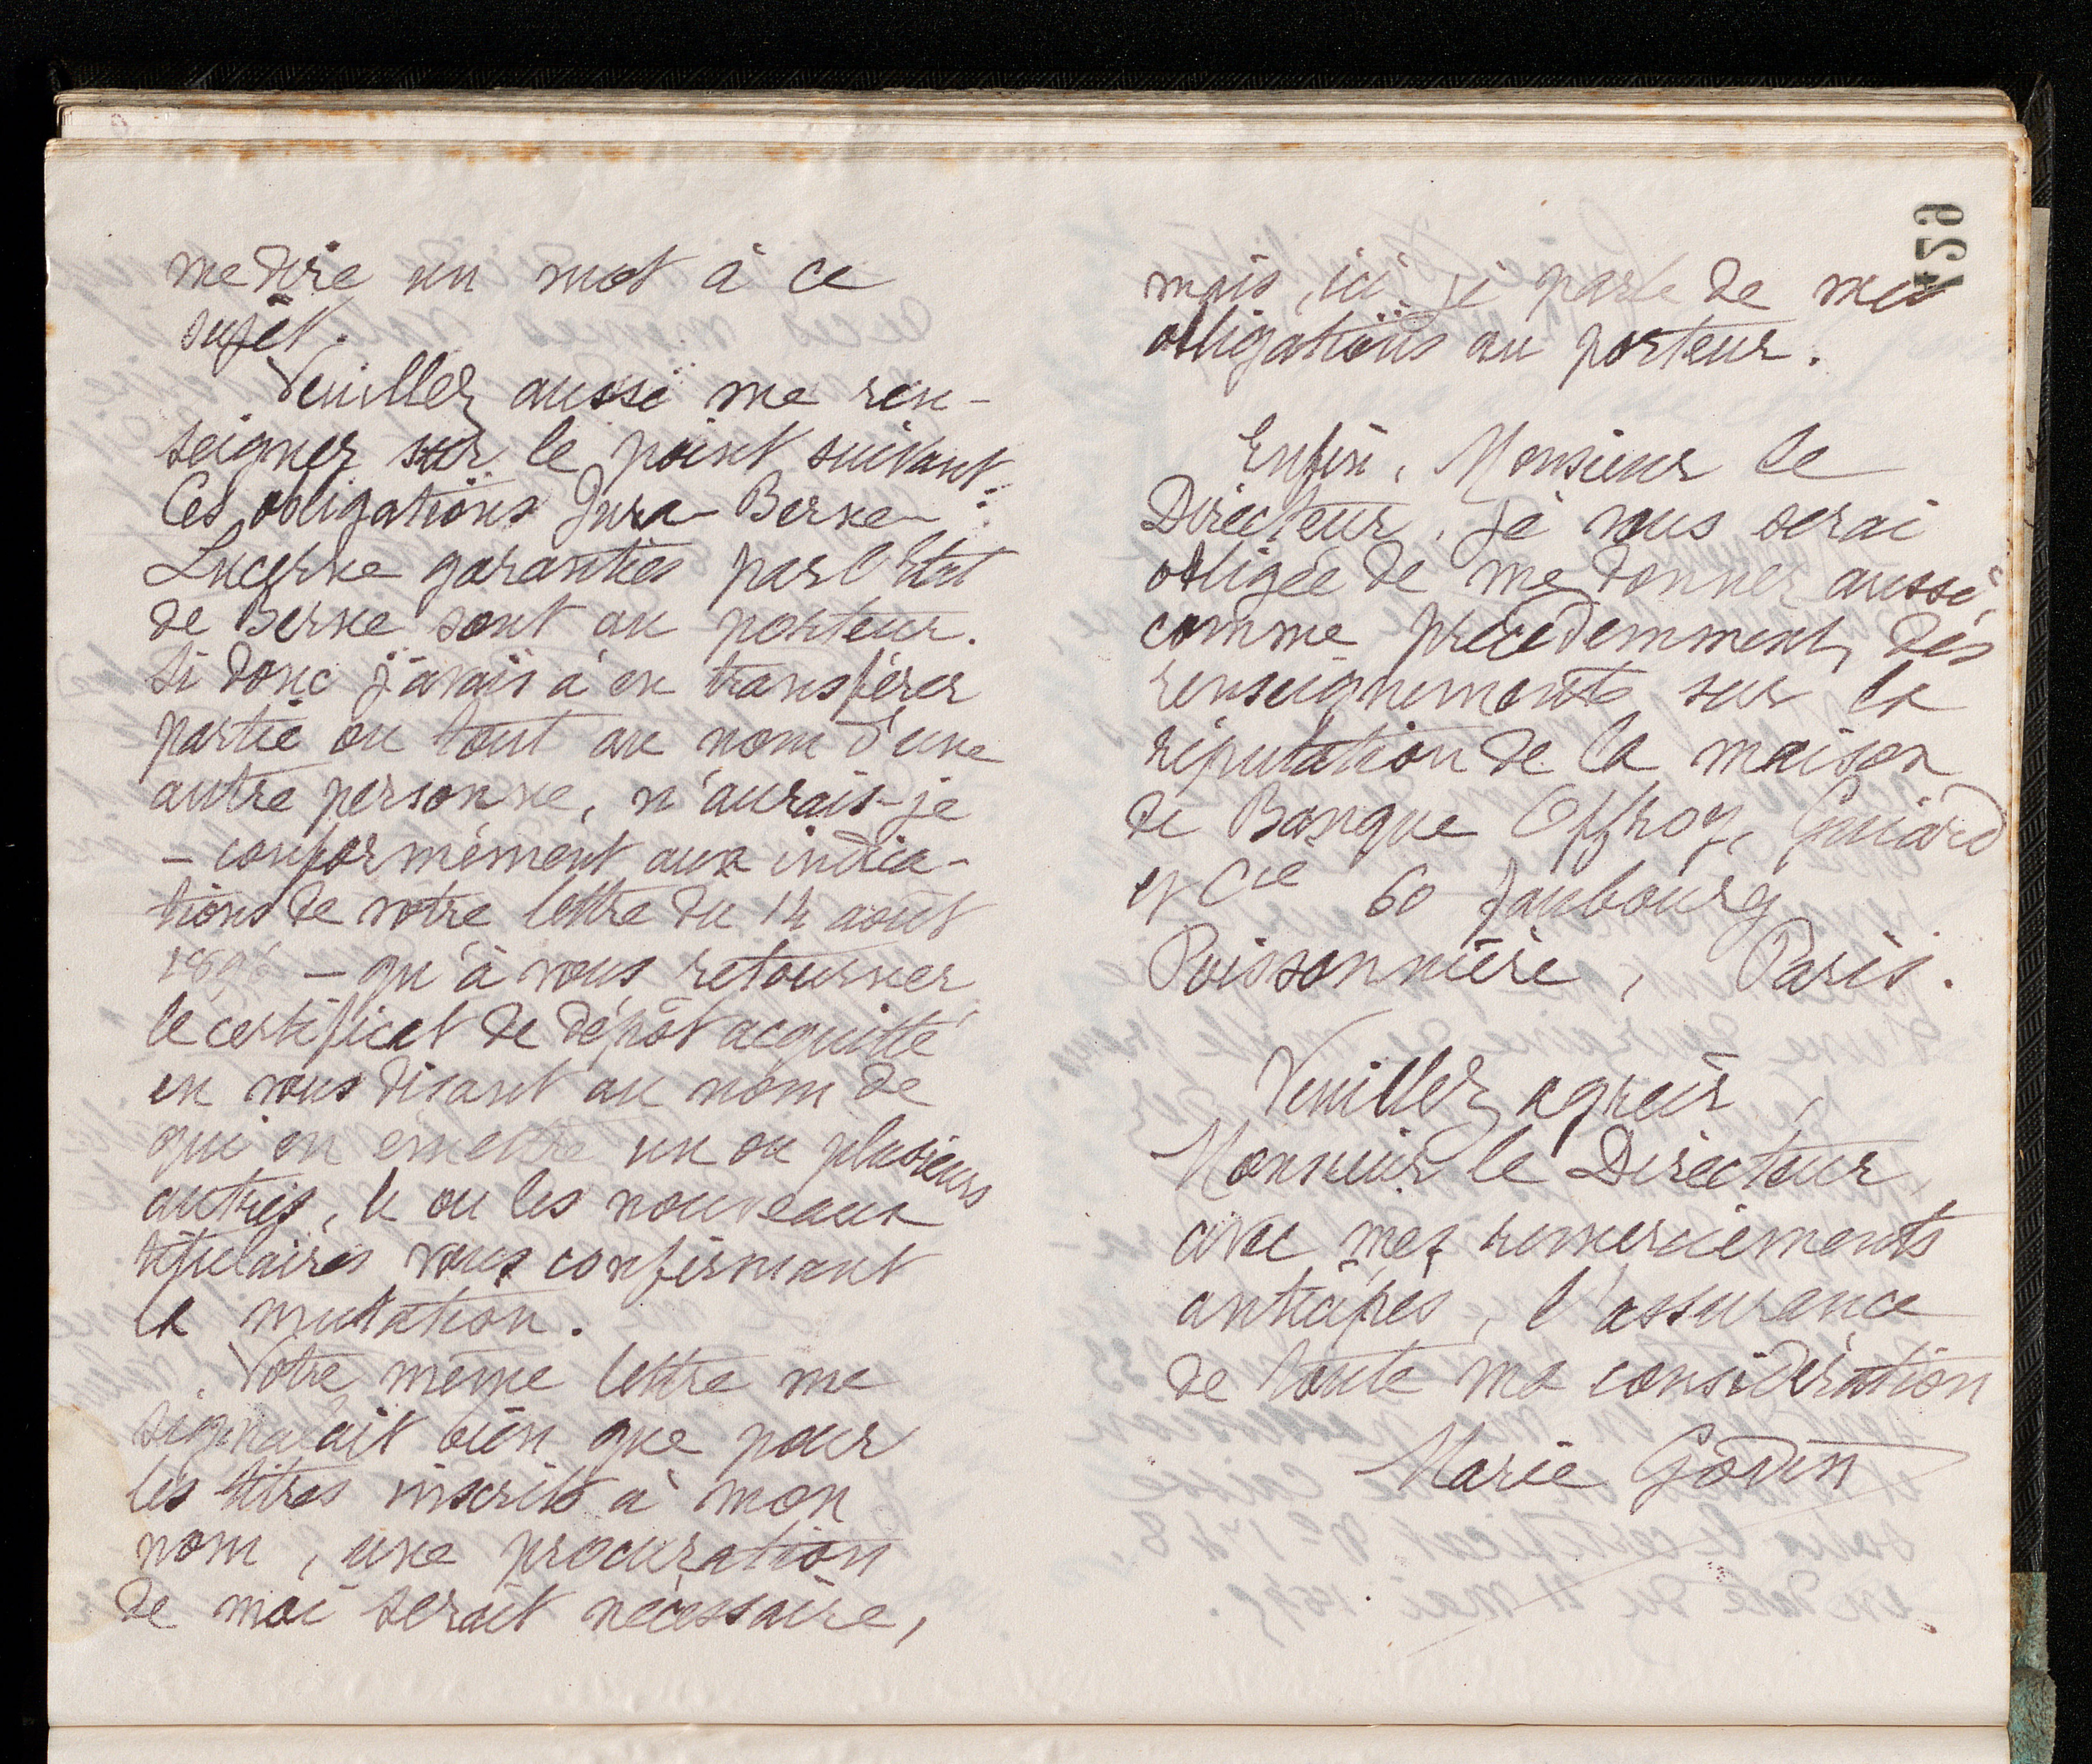 me dire un mot à ce
sujet.
Veuillez aussi me ren-
seigner sur le point suivant:
Ces obligations Jura-Berne-
Lucerne garanties par l'Etat
de Berne sont au porteur.
Si donc j'avais à en transférer
partie ou tout au nom d'une
autre personne, n'aurais-je
– conformément aux indica-
tions de votre lettre du 14 août
– qu'à vous retourner
le certificat de dépôt acquitté
en vous disant au nom de
qui en émettre un ou plusieurs
autres, le ou les nouveaux
titulaires vous confirmant
la mutation.
Votre même lettre me
signalait bien que pour
les titres inscrits à mon
nom, une procuration
de moi serait nécessaire,
mais, ici je parle de mes
obligations au porteur.
Enfin, Monsieur le
Directeur, je vous serai
obligée de me donner aussi,
comme précédemment, des
renseignements sur la
réputation de la maison
de Banque Offroy, Guiard
et Cie 60 faubourg
Poissonnière, Paris.
Veuillez agréer,
Monsieur le Directeur,
avec mes remerciements
anticipés, l'assurance
de toute ma considération
Marie Godin